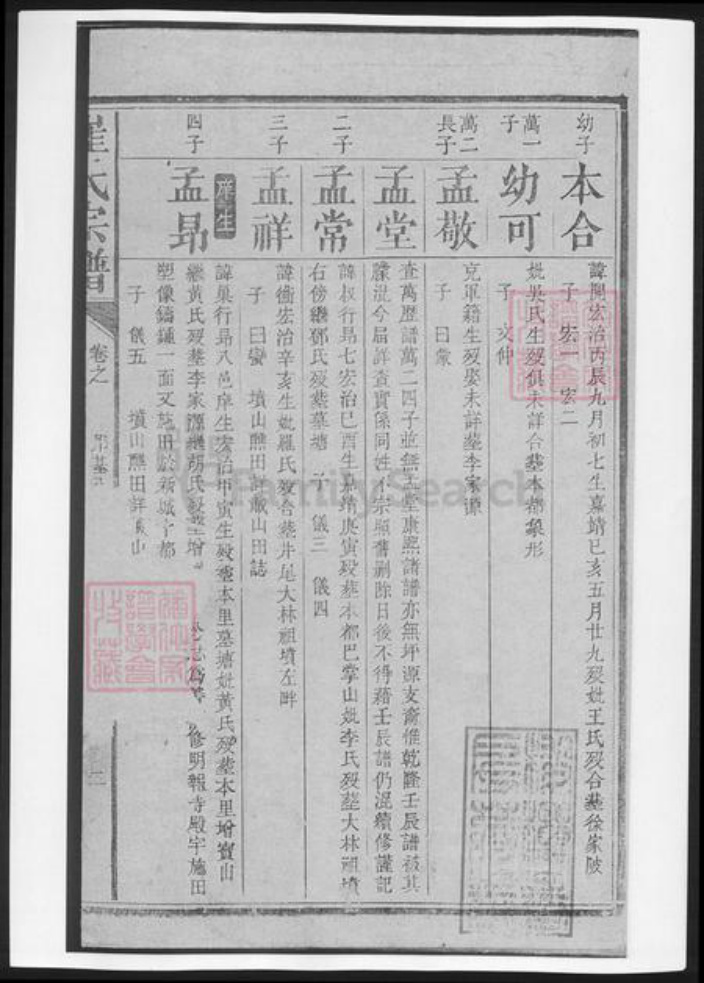 幼子
本合
諱開宏治丙辰九月初七生嘉靖巳亥五月廿九歿妣王氏歿合塟徐家陂
子 宏一 宏二
萬一
子
幼可
妣吳氏生歿俱未詳合塟本都象形
子 文仲
萬二
長子
孟敬
克軍籍生歿娶未詳塟李家源
子 曰蒙
孟堂
查萬歷譜萬二四子並無孟堂康熙諸譜亦無坪源支裔惟乾隆壬辰譜被其
朦混今届詳查實係同姓不宗照舊刪除日後不得藉壬辰譜仍混續修謹記
二子
孟常
諱叔行昴七宏治巳酉生嘉靖庚寅歿塟本都巴掌山妣李氏歿塟大林祖墳
右傍繼鄧氏歿塟墓塘 子 儀三 儀四
三子
孟祥
諱衝宏治辛亥生妣羅氏歿合塟井尾大林祖墳左畔
子 曰蠻 墳山醮田詳載山田誌
四子
孟昴
庠生
諱巢行昴八邑庠生宏治甲寅生歿塟本里墓塘妣黃氏歿塟本里增寶山
繼黃氏歿塟李家源繼胡氏歿塟增 修明報寺殿宇施田
塑像鑄鍾一面又施田於新城宁都
子 儀五 墳山醮田詳載山
崔氏宗譜
卷之
二
FamilySearch